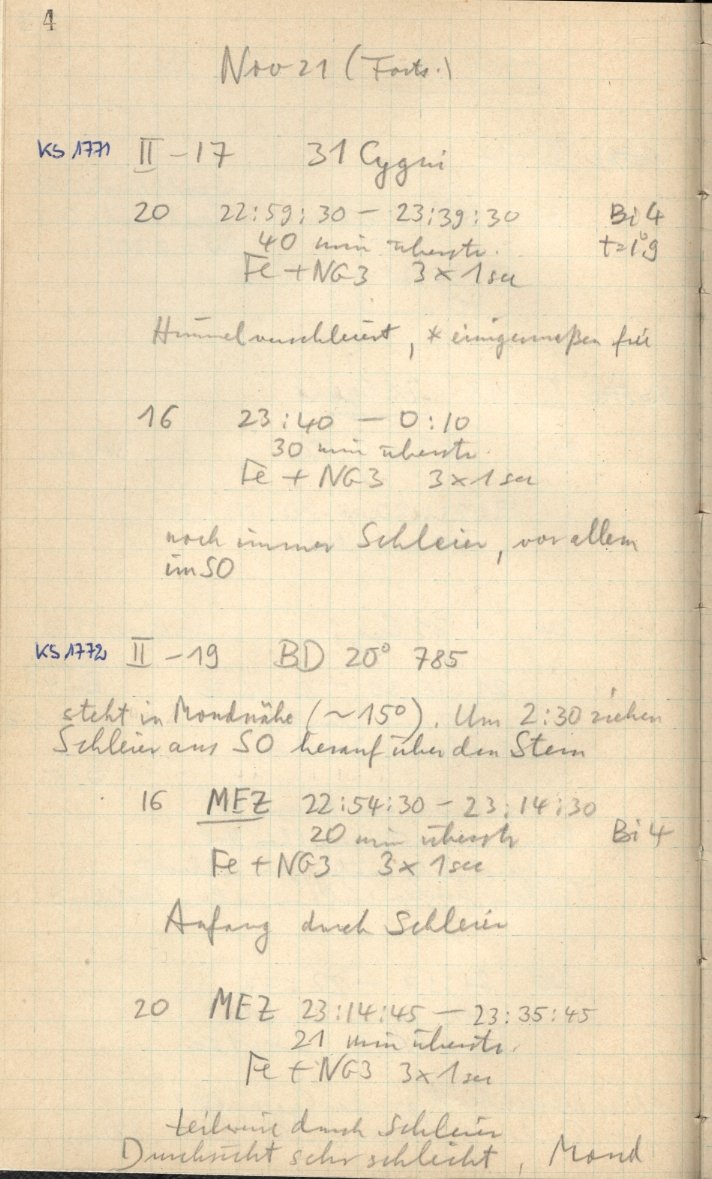 4
Nov 21 (Forts.)
KS 1771 II - 17 31 Cygni
20 22:59:30 - 23:39:30 Bi 4
40 min überstr. t=1°,9
Fe + NG3 3 x 1 sec
Himmel verschleiert, * einigermaßen frei
16 23:40 - 0:10
30 min überstr.
Fe + NG3 3 x 1 sec
noch immer Schleier, vor allem
im SO
KS 1772 II - 19 BD 20° 785
steht in Mondnähe (~15°). Um 2:30 ziehen
Schleier aus SO herauf über den Stern
16 MEZ 22:54:30 - 23:14:30
20 min überstr Bi 4
Fe + NG3 3 x 1 sec
Anfang durch Schleier
20 MEZ 23:14:45 - 23:35:45
21 min überstr.
Fe + NG3 3 x 1 sec
teilweise durch Schleier
Durchsicht sehr schlecht, Mond